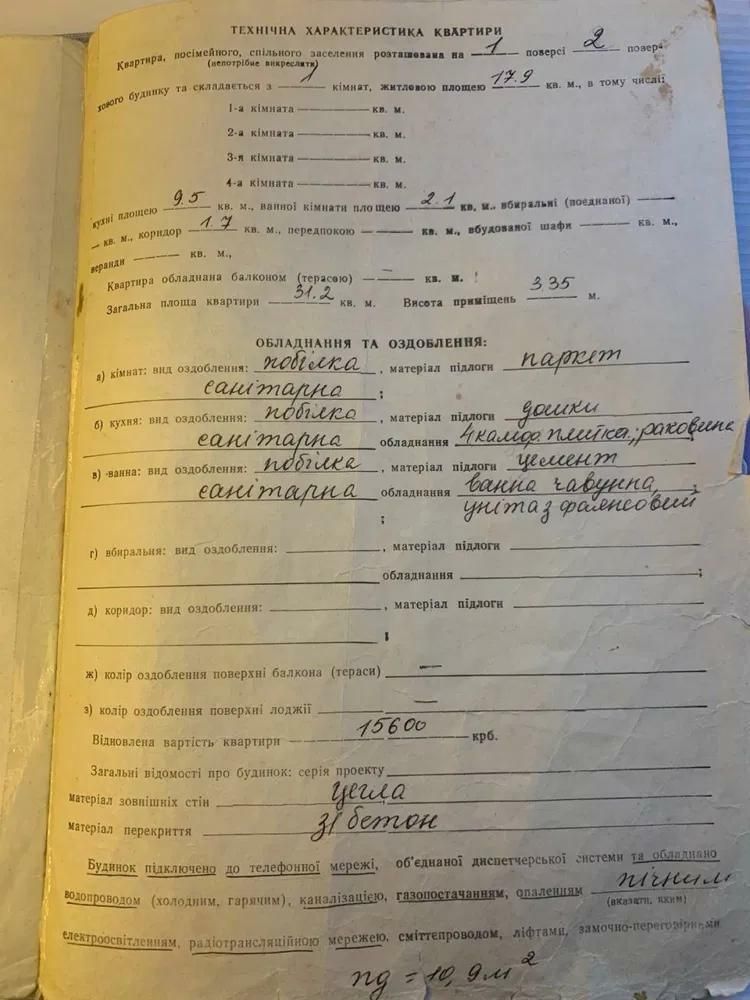 ТЕХНІЧНА ХАРАКТЕРИСТИКА КВАРТИРИ
Квартира, посімейного, спільного заселення розташована на 1 поверсі 2 повер-
(непотрібне викреслити)
хового будинку та складається з 1 кімнат, житловою площею 17.9 кв. м., в тому числі:
1-а кімната кв. м.
2-а кімната кв. м.
3-я кімната кв. м.
4-а кімната кв. м.
кухні площею 9.5 кв. м., ванної кімнати площею 2.1 кв. м., вбиральні (поєднаної) —
— кв. м., коридор 1.7 кв. м., передпокою — кв. м., вбудованої шафи — кв. м.,
веранди — кв. м.,
Квартира обладнана балконом (терасою) — кв. м.
Загальна площа квартири 31.2 кв. м. Висота приміщень 3.35 м.
ОБЛАДНАННЯ ТА ОЗДОБЛЕННЯ:
а) кімнат: вид оздоблення: побілка, матеріал підлоги паркет
санітарна ;
б) кухня: вид оздоблення: побілка, матеріал підлоги дошки
санітарна обладнання 4 камф. плитка; раковина
в) ванна: вид оздоблення: побілка, матеріал підлоги цемент
санітарна обладнання ванна чавунна, ;
; унітаз фаянсовий
г) вбиральня: вид оздоблення: , матеріал підлоги
обладнання ;
д) коридор: вид оздоблення: , матеріал підлоги
;
ж) колір оздоблення поверхні балкона (тераси) —
з) колір оздоблення поверхні лоджії —
Відновлена вартість квартири 15600 крб.
Загальні відомості про будинок: серія проекту
матеріал зовнішніх стін цегла
матеріал перекриття з/бетон
Будинок підключено до телефонної мережі, об'єднаної диспетчерської системи та обладнано
водопроводом (холодним, гарячим), каналізацією, газопостачанням, опаленням пічним
(вказати, яким)
електроосвітленням, радіотрансляційною мережею, сміттєпроводом, ліфтами, замочно-переговірними
пд = 10,9 м²